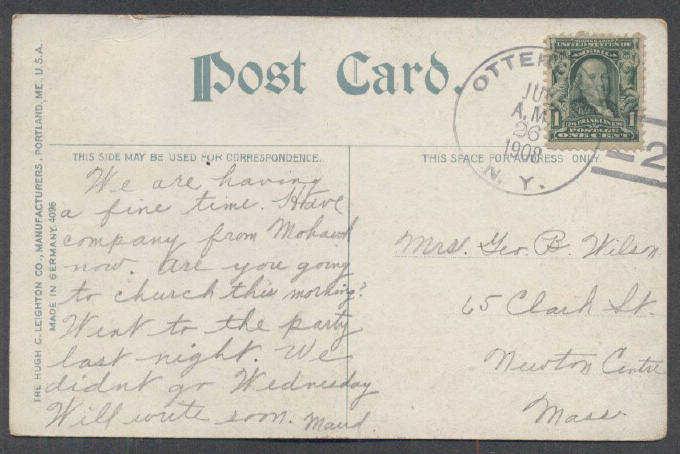 Post Card.
THIS SIDE MAY BE USED FOR CORRESPONDENCE.
THIS SPACE FOR ADDRESS ONLY.
THE HUGH C. LEIGHTON CO., MANUFACTURERS, PORTLAND, ME., U.S.A.
MADE IN GERMANY. 4096
We are having
a fine time. Have
company from Mohawk
now. Are you going
to church this morning?
Went to the party
last night. We
didnt go Wednesday
Will write soon. Maud.
OTTER
JU
A.M
26
1908
N. Y.
UNITED STATES OF AMERICA
1 FRANKLIN 1
POSTAGE
ONE CENT
2
Mrs. Geo. B. Wilson
65 Clark St.
Newton Centre
Mass.